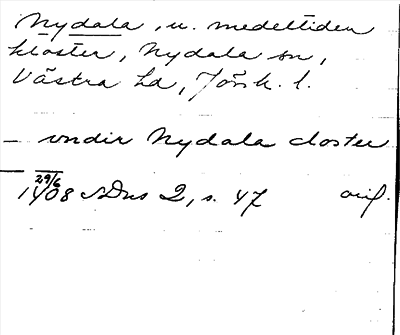 Nydala, u. medeltiden
kloster, Nydala sn,
Västra hd, Jönk. l.
– vndir Nydala closter
29/6
1408 SDns 2, s. 47 orig.